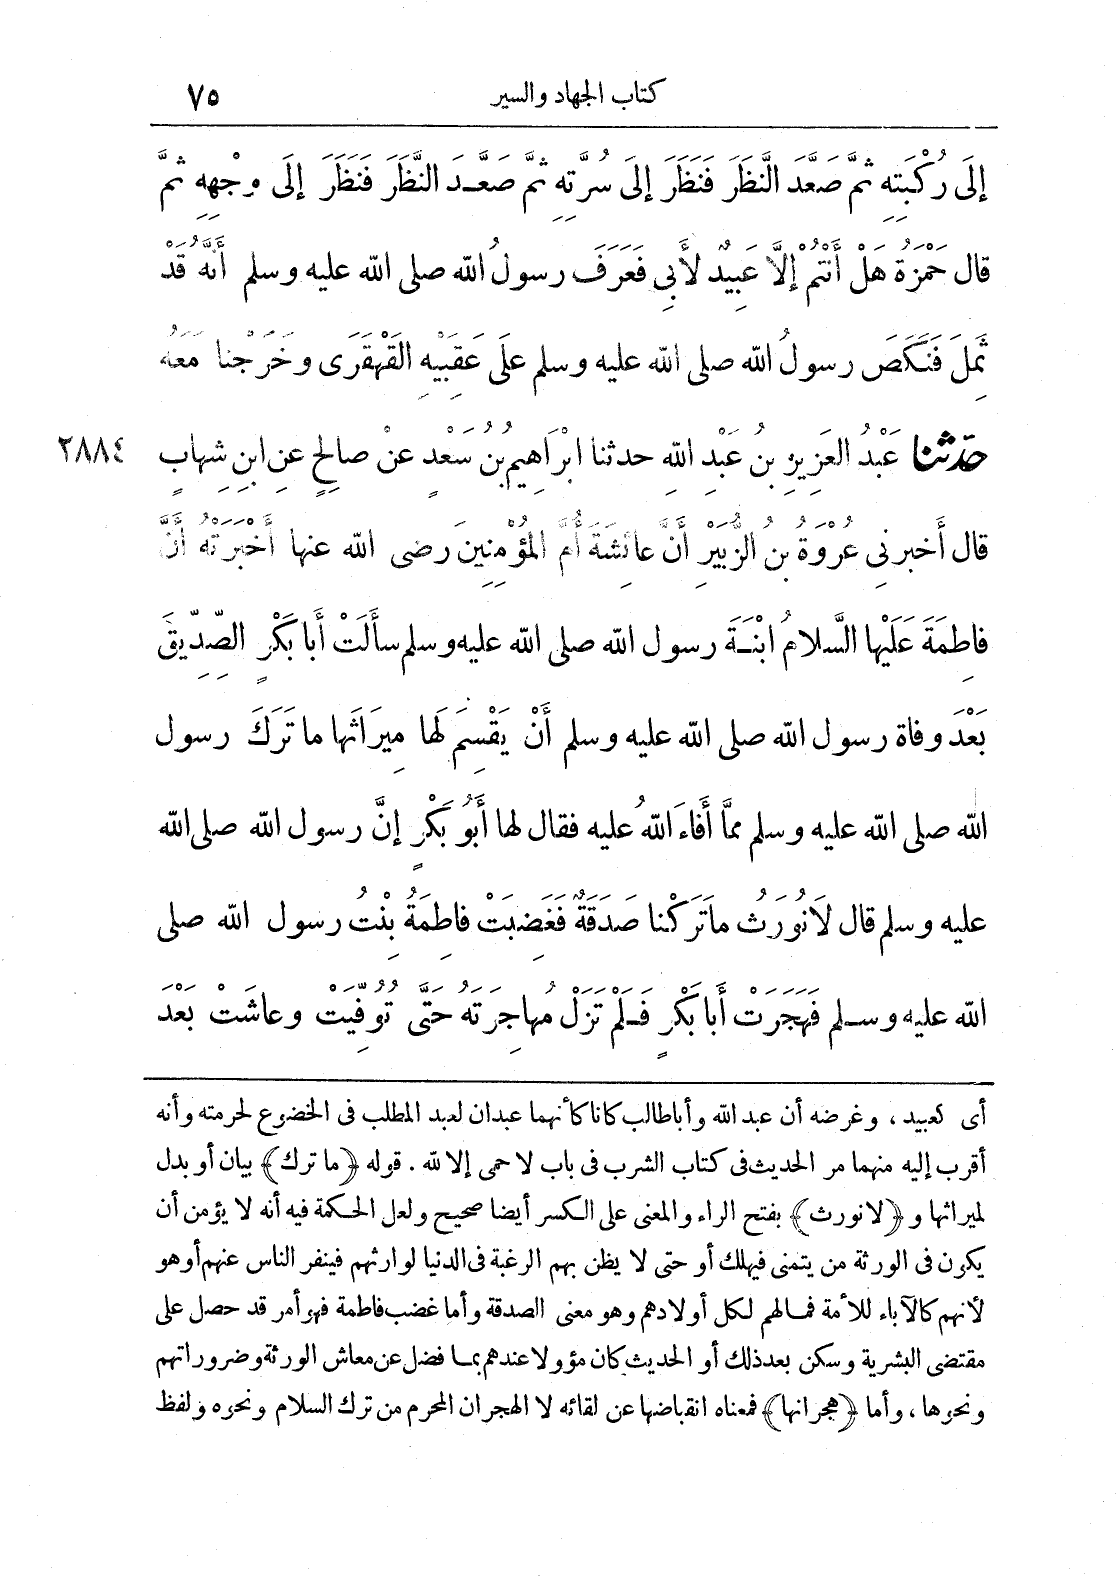 كتاب الجهاد والسير ٧٥
إِلَى رُكْبَتِهِ ثمَّ صَعَّدَ النَّظَرَ فَنَظَرَ إِلَى سُرَّتِهِ ثمَّ صَعَّـدَ النَّظَرَ فَنَظَرَ إِلَى وجْهِهِ ثمَّ
قال حَمْزَةُ هَلْ أَنْتُمْ إِلَّا عَبِيدٌ لأَبِي فَعَرَفَ رسولُ الله صلى الله عليه وسلم أَنَّهُ قَدْ
ثَمِلَ فَنَكَصَ رسولُ الله صلى الله عليه وسلم علَى عَقِبَيْهِ القَهْقَرَى وخَرَجْنا مَعَهُ
حدّثنا عَبْدُ العَزِيزِ بنُ عَبْدِ الله حدثنا ابْرَاهِيمُ بنُ سَعْدٍ عنْ صالِحٍ عنِ ابنِ شِهابٍ ٢٨٨٤
قال أَخبرنِى عُرْوَةُ بنُ الزُّبَيْرِ أَنَّ عائِشَةَ أُمَّ المُؤْمِنِينَ رضى الله عنها أَخْبَرَتْهُ أَنَّ
فاطِمَةَ عَلَيْها السَّلامُ ابْنَـةَ رسول الله صلى الله عليه وسلم سأَلَتْ أَبا بَكْرٍ الصِّدِّيقَ
بَعْدَ وفاة رسول الله صلى الله عليه وسلم أَنْ يَقْسِمَ لَها مِيرَاثَها ما تَرَكَ رسول
الله صلى الله عليه وسلم ممَّا أَفَاءَ اللهُ عليه فقال لها أَبُو بَكْرٍ إِنَّ رسول الله صلى الله
عليه وسلم قال لَا نُورَثُ ما تَرَكْنا صَدَقَةٌ فَغَضِبَتْ فاطِمَةُ بِنْتُ رسول الله صلى
الله عليه وسـلم فَهَجَرَتْ أَبا بَكْرٍ فَـلَمْ تَزَلْ مُهاجِرَتَهُ حَتَّى تُوُفِّيَتْ وعاشَتْ بَعْدَ
أى كعبيد ، وغرضه أن عبد الله وأبا طالب كانا كأنهما عبدان لعبد المطلب فى الخضوع لحرمته وأنه
أقرب إليه منهما مر الحديث فى كتاب الشرب فى باب لا حمى إلا لله . قوله ﴿ما ترك﴾ بيان أو بدل
لميراثها و ﴿لا نورث﴾ بفتح الراء والمعنى على الكسر أيضا صحيح ولعل الحكمة فيه أنه لا يؤمن أن
يكون فى الورثة من يتمنى فيهلك أو حتى لا يظن بهم الرغبة فى الدنيا لوارثهم فينفر الناس عنهم أو هو
لأنهم كالآباء للأمة فمالهم لكل أولادهم وهو معنى الصدقة وأما غضب فاطمة فهو أمر قد حصل على
مقتضى البشرية وسكن بعد ذلك أو الحديث كان مؤولا عندهم بما فضل عن معاش الورثة وضروراتهم
ونحوها ، وأما ﴿هجرانها﴾ فمعناه انقباضها عن لقائه لا الهجران المحرم من ترك السلام ونحوه ولفظ